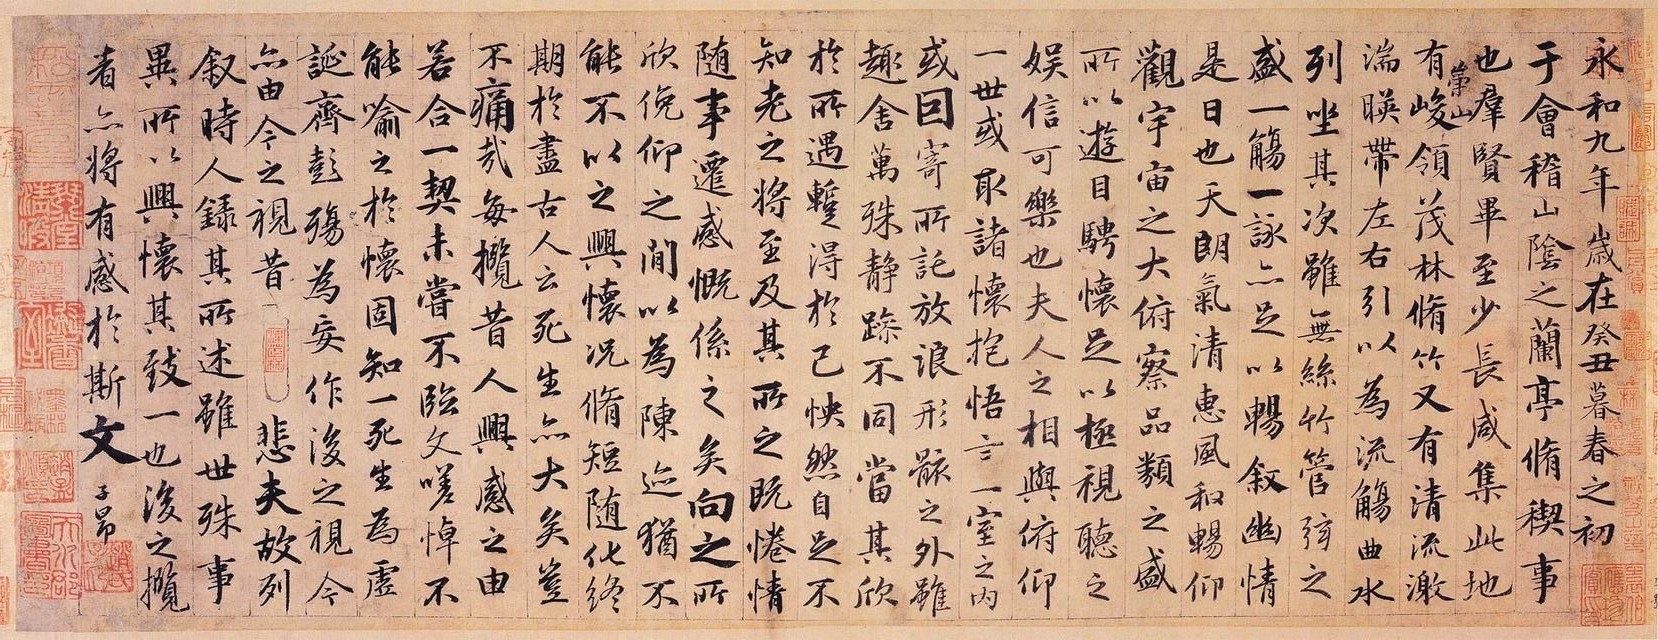 永和九年歲在癸丑暮春之初
于會稽山陰之蘭亭脩稧事
也羣賢畢至少長咸集此地
有崇山峻領茂林脩竹又有清流激
湍暎帶左右引以為流觴曲水
列坐其次雖無絲竹管弦之
盛一觴一詠亦足以暢叙幽情
是日也天朗氣清惠風和暢仰
觀宇宙之大俯察品類之盛
所以遊目騁懷足以極視聽之
娱信可樂也夫人之相與俯仰
一世或取諸懷抱悟言一室之內
或因寄所託放浪形骸之外雖
趣舍萬殊静躁不同當其欣
於所遇蹔得於己怏然自足不
知老之將至及其所之既惓情
随事遷感慨係之矣向之所
欣俛仰之閒以為陳迹猶不
能不以之興懷况脩短随化終
期於盡古人云死生亦大矣豈
不痛哉每攬昔人興感之由
若合一契未嘗不臨文嗟悼不
能喻之於懷固知一死生為虛
誕齊彭殤為妄作後之視今
亦由今之視昔悲夫故列
叙時人錄其所述雖世殊事
異所以興懷其致一也後之攬
者亦將有感於斯文子昂